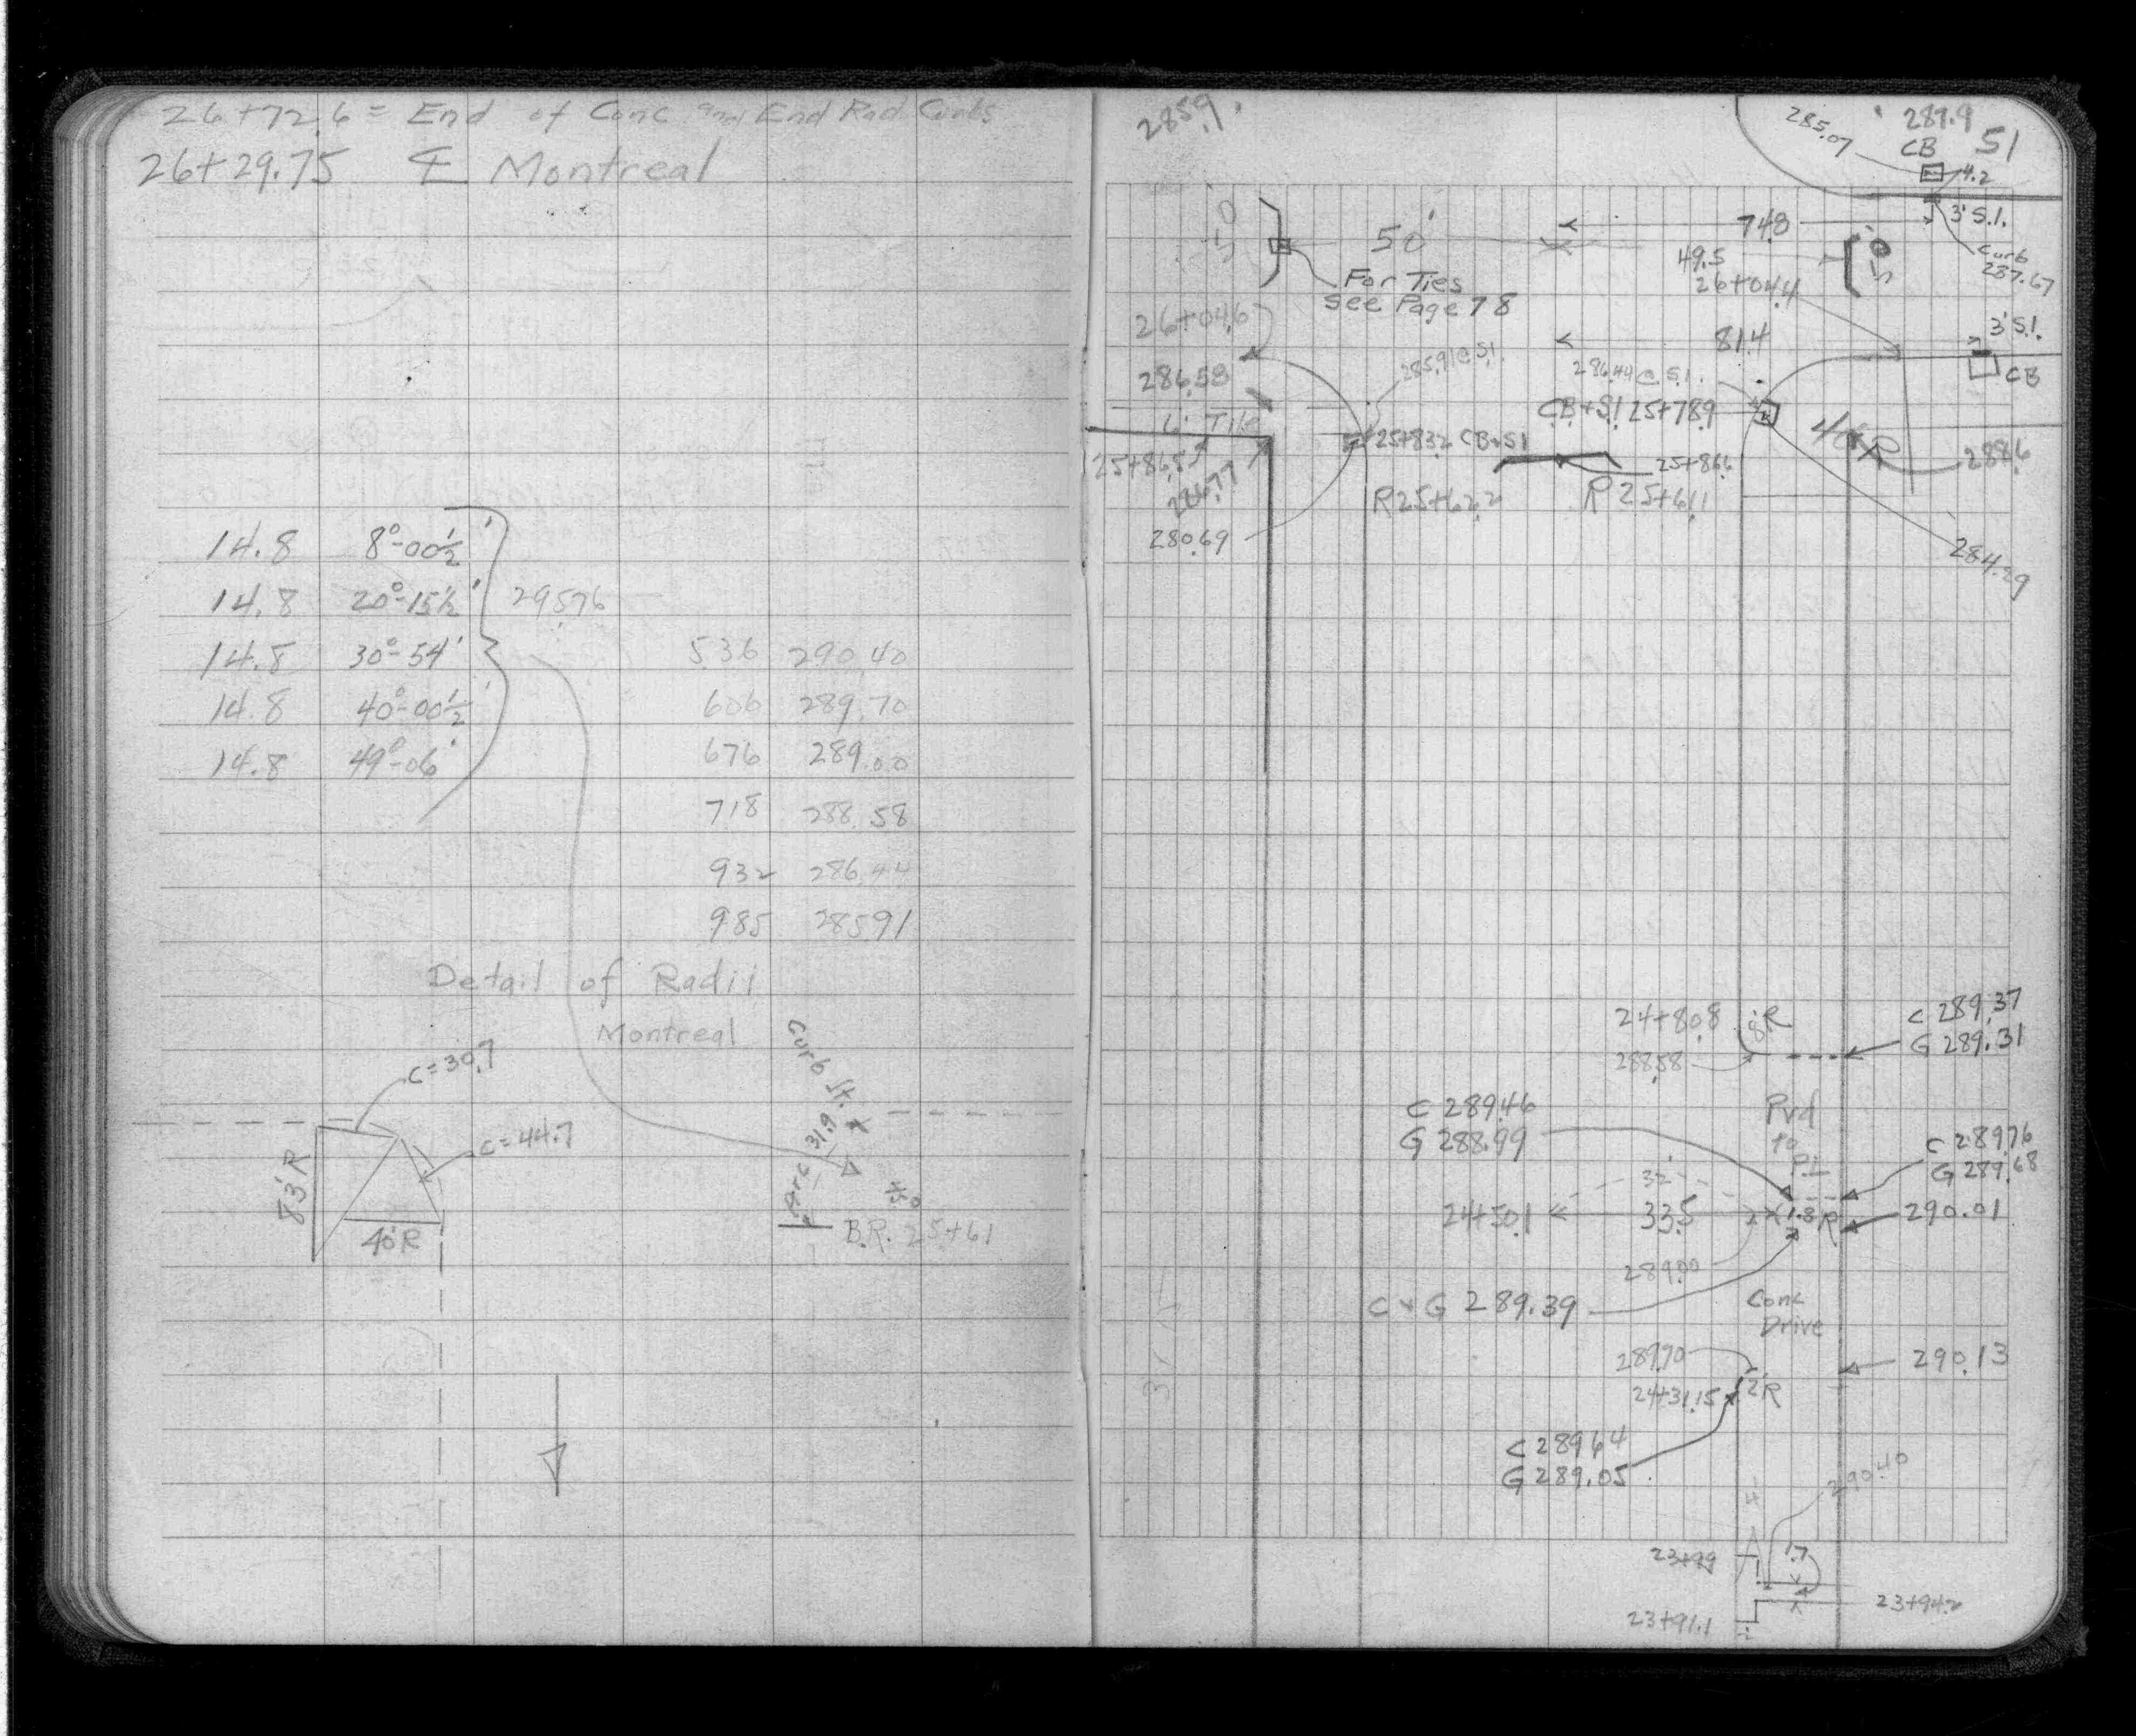 26+72.6 = End of Conc and End Rad Curbs
26+29.75 ℄ Montreal
14.8 8°-00½'
14.8 20°-15½' 295.76
14.8 30°-54'
14.8 40°-00½'
14.8 49°-06'
536 290.40
606 289.70
676 289.00
718 288.58
932 286.44
985 285.91
Detail of Radii
Montreal
C=30.7
C=44.7
83'R
40'R
Curb St.
Arc 31.9
B.R. 25+61
285.9
285.07
289.9
CB
51
4.2
3' S.I.
Curb
287.67
50'
74.8
49.5
26+04.4
For Ties
See Page 78
26+04.6
3' S.I.
81.4
CB
286.58
285.91 @ S.I.
286.44 @ S.I.
CB+SI 25+78.9
6" Tile
25+83.2 CB+SI
40'R
288.6
25+86.5
286.77
25+86.6
R 25+62.2
R 25+61.1
280.69
284.29
24+80.8
8'R
C 289.37
G 289.31
288.58
C 289.46
G 288.99
Pvd
to
PL
C 289.76
G 289.68
32'
24+50.1
33.5
1.8'R
290.01
289.00
C+G 289.39
Conc
Drive
289.70
290.13
24+31.15
2'R
C 289.64
G 289.05
290.40
23+99
1.7
23+94.2
23+91.1